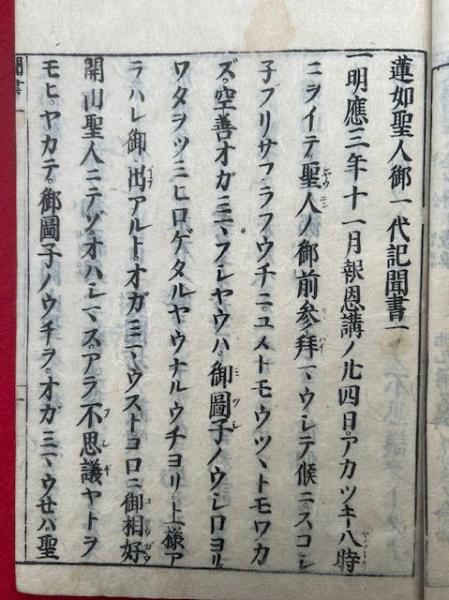 蓮如聖人御一代記聞書一
一明應三年十一月報恩講ノ廿四日。アカツキ八時
ニヲイテ聖人ノ御前参拜マウシテ候ニ。スコシ
子フリサフラフウチニ。ユメトモウツヽトモワカ
ズ。空善オガミマフシヤウハ。御圖子ノウシロヨリ。
ワタヲツミヒロゲタルヤウナルウチヨリ上様ア
ラハレ御出アルト。オガミマウストコロニ御相好
開山聖人ニテゾ。オハシマス。アラ不思議ヤトヲ
モヒ。ヤカテ。御圖子ノウチヲ。オガミマウセハ聖